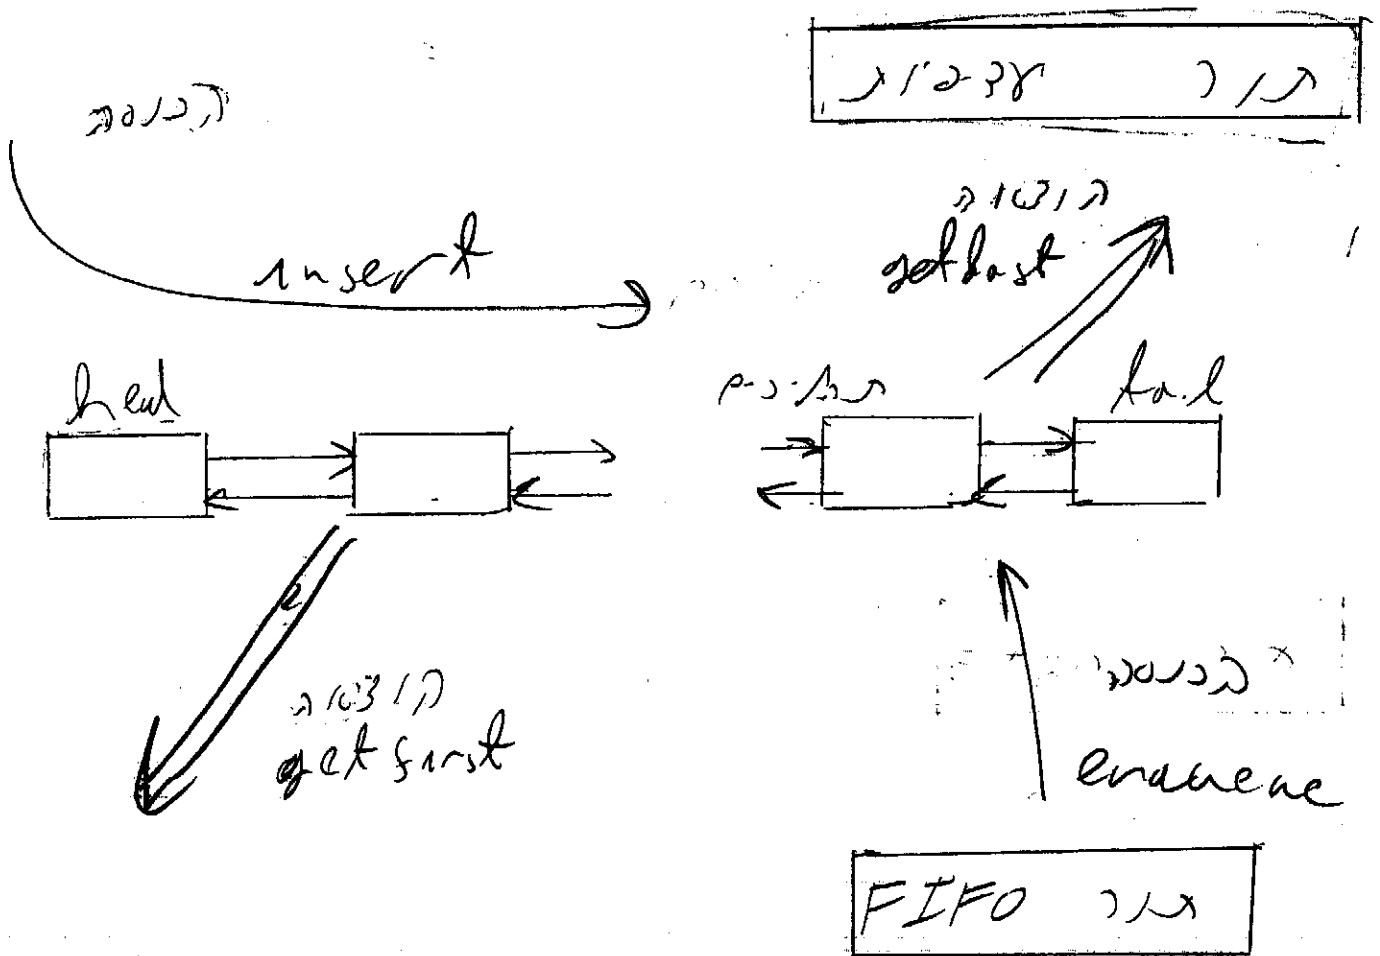 תור עדיפות
הכנסה
insert
הוצאה
getlast
head
tail
הוצאה
getfirst
הכנסה
enqueue
תור FIFO